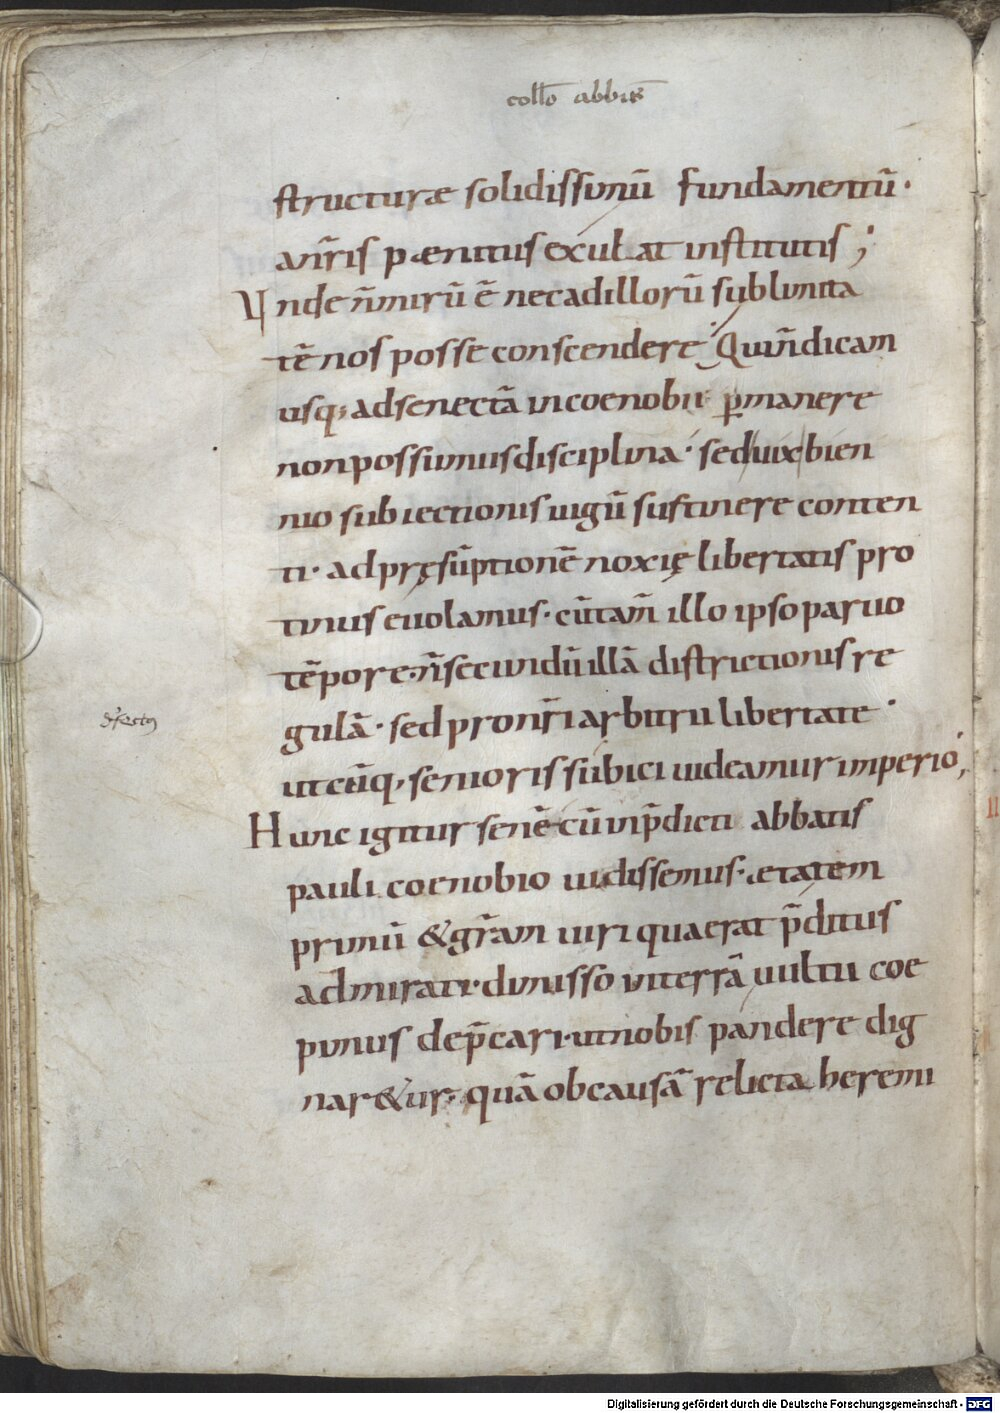 collo̅ abbis̅
structuræ solidissimū fundamentū·
anr̅is pænitus exulat institutis ;
Unde nı̅mirū ē nec ad illorū sublimita
tē nos posse conscendere· Quin̅ dicam
usq; ad senectā in coenobii p̱manere
non possumus disciplina· sed uix bien
nio subiectionis iugū sustinere conten
ti· ad pręsūptionē noxię libertatis pro
tinus euolamus· cū tam̅ illo ipso paruo
tēpore· n̅ secundū illā districtionis re
gulā· sed pro nr̅i arbitrii libertate·
defectus
utcūq; senioris subici uideamur imperio;
Hunc igitur senē cū in p̅dicti abbatis
pauli coenobio uidissemus· ætatem
primū & gr̅am uiri qua erat p̅ditus
admirati· dimisso in terrā uultu coe
pimus dep̅cari· ut nobis pandere dig
nar&ur· quā ob causā relicta heremi
Digitalisierung gefördert durch die Deutsche Forschungsgemeinschaft - DFG